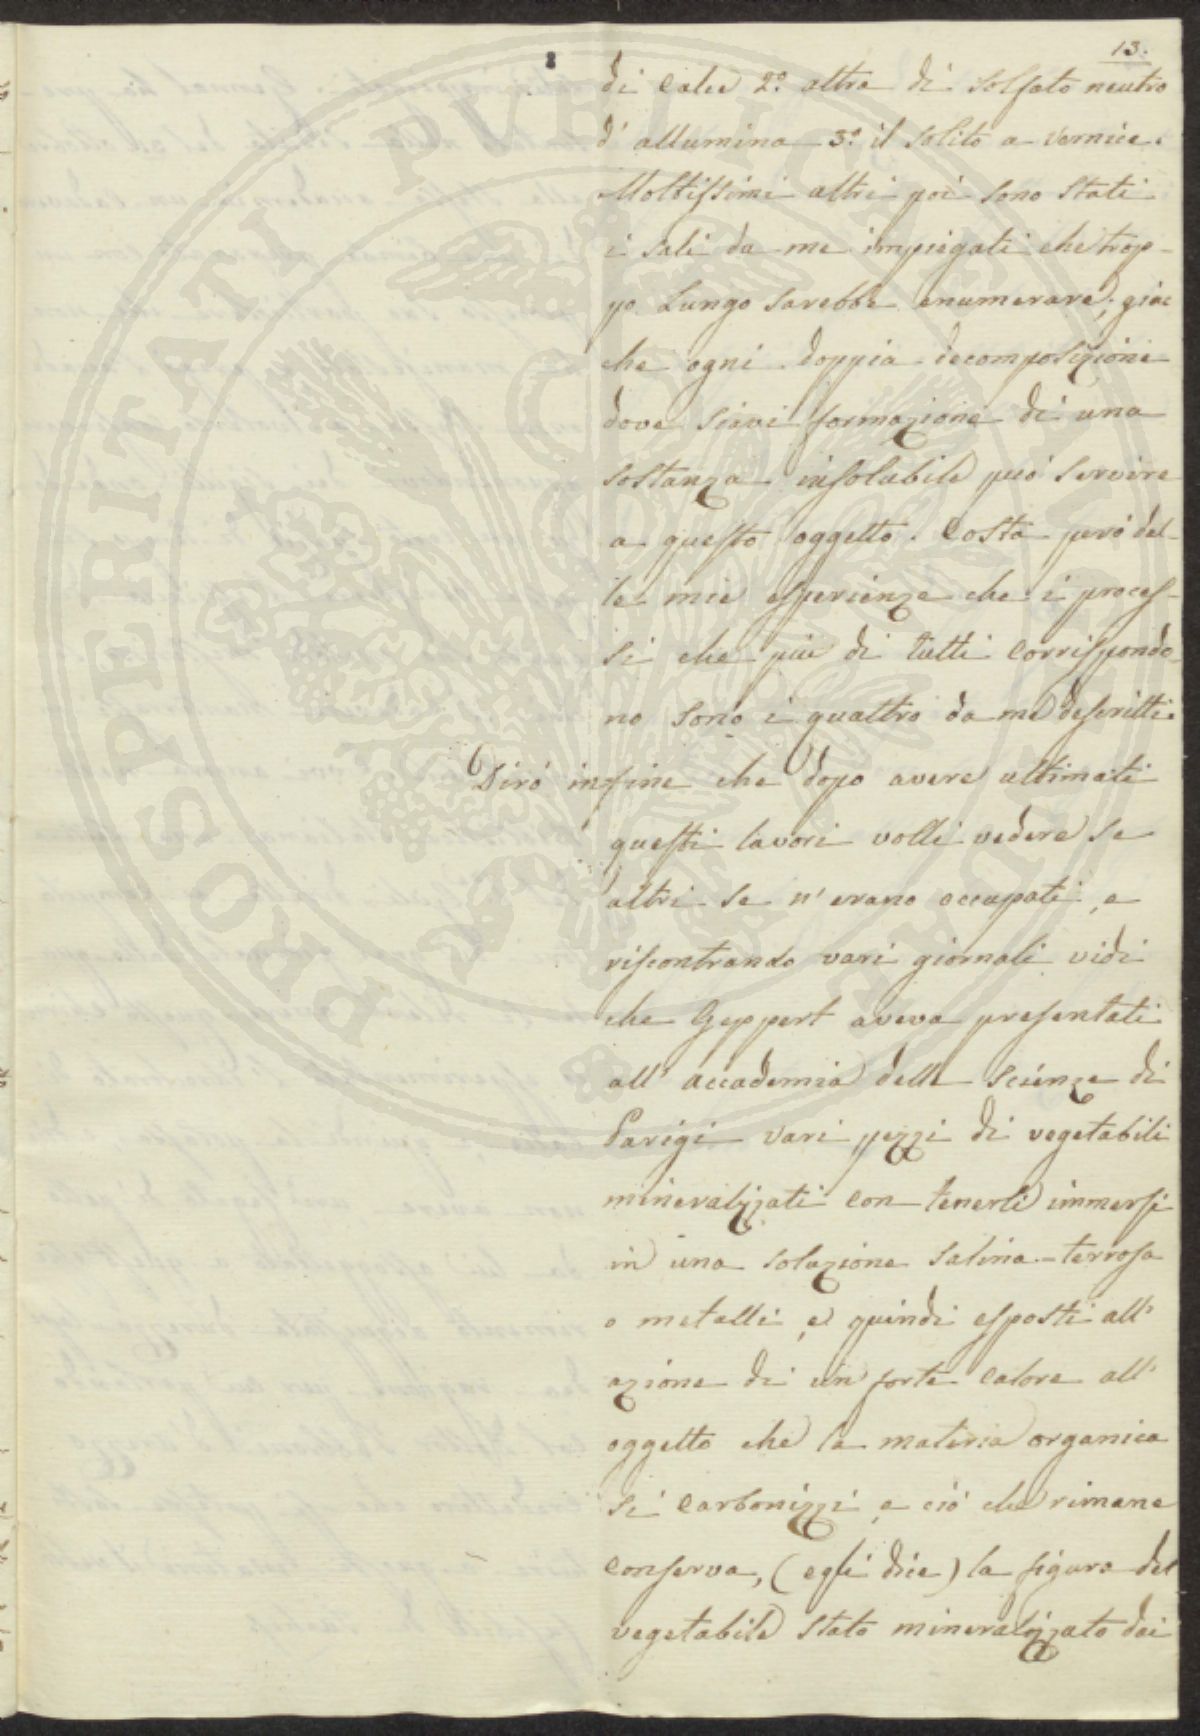 13.
di calce 2.º altra di solfato neutro
d' allumina 3.º il solito a vernice.
Moltissimi altri poi sono stati
i sali da me impiegati che trop-
po lungo sarebbe enumerare; giac
che ogni doppia decomposizione
dove siavi formazione di una
sostanza insolubile può servire
a questo oggetto. Costa però del-
le mie esperienze che i proces-
si che più di tutti corrisponde-
no sono i quattro da me descritti.
Dirò infine che dopo avere ultimati
questi lavori volli vedere se
altri se n' erano occupati, e
riscontrando vari giornali vidi
che Geppert aveva presentati
all' accademia delle scienze di
Parigi vari pezzi di vegetabili
mineralizzati con tenerli immersi
in una soluzione salina-terrosa
o metalli, e quindi esposti all'
azione di un forte calore all'
oggetto che la materia organica
si carbonizzi, e ciò che rimane
conserva, (egli dice) la figura del
vegetabile stato mineralizzato dai
PROSPERITATI PUBLICAE